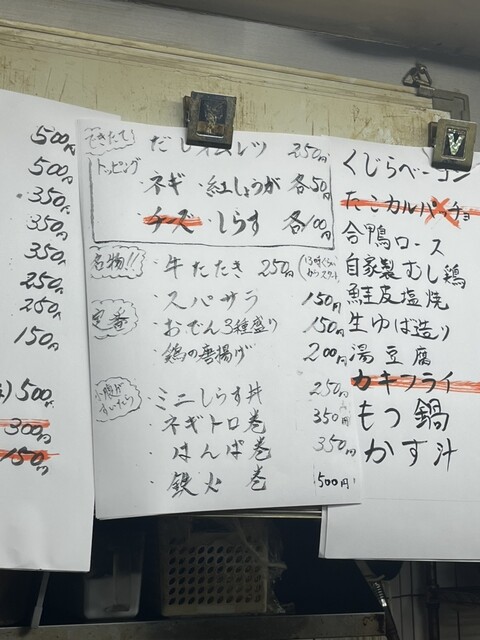 500円
500円
350円
350円
350円
250円
250円
150円
500円
300円
150円
できたて
だしオムレツ 350円
トッピング
・ネギ ・紅しょうが 各50円
・チーズ ・しらす 各100円
名物!!
・牛たたき 250円
・スパサラ 150円
定番
・おでん3種盛り 150円
・鶏の唐揚げ 200円
小腹がすいたら
・ミニしらす丼 250円
・ネギトロ巻 350円
・はんぱ巻 350円
・鉄火巻 500円
くじらベーコン
たこカルパッチョ
合鴨ロース
自家製むし鶏
鮭皮塩焼
生ゆば造り
湯豆腐
カキフライ
もつ鍋
かす汁